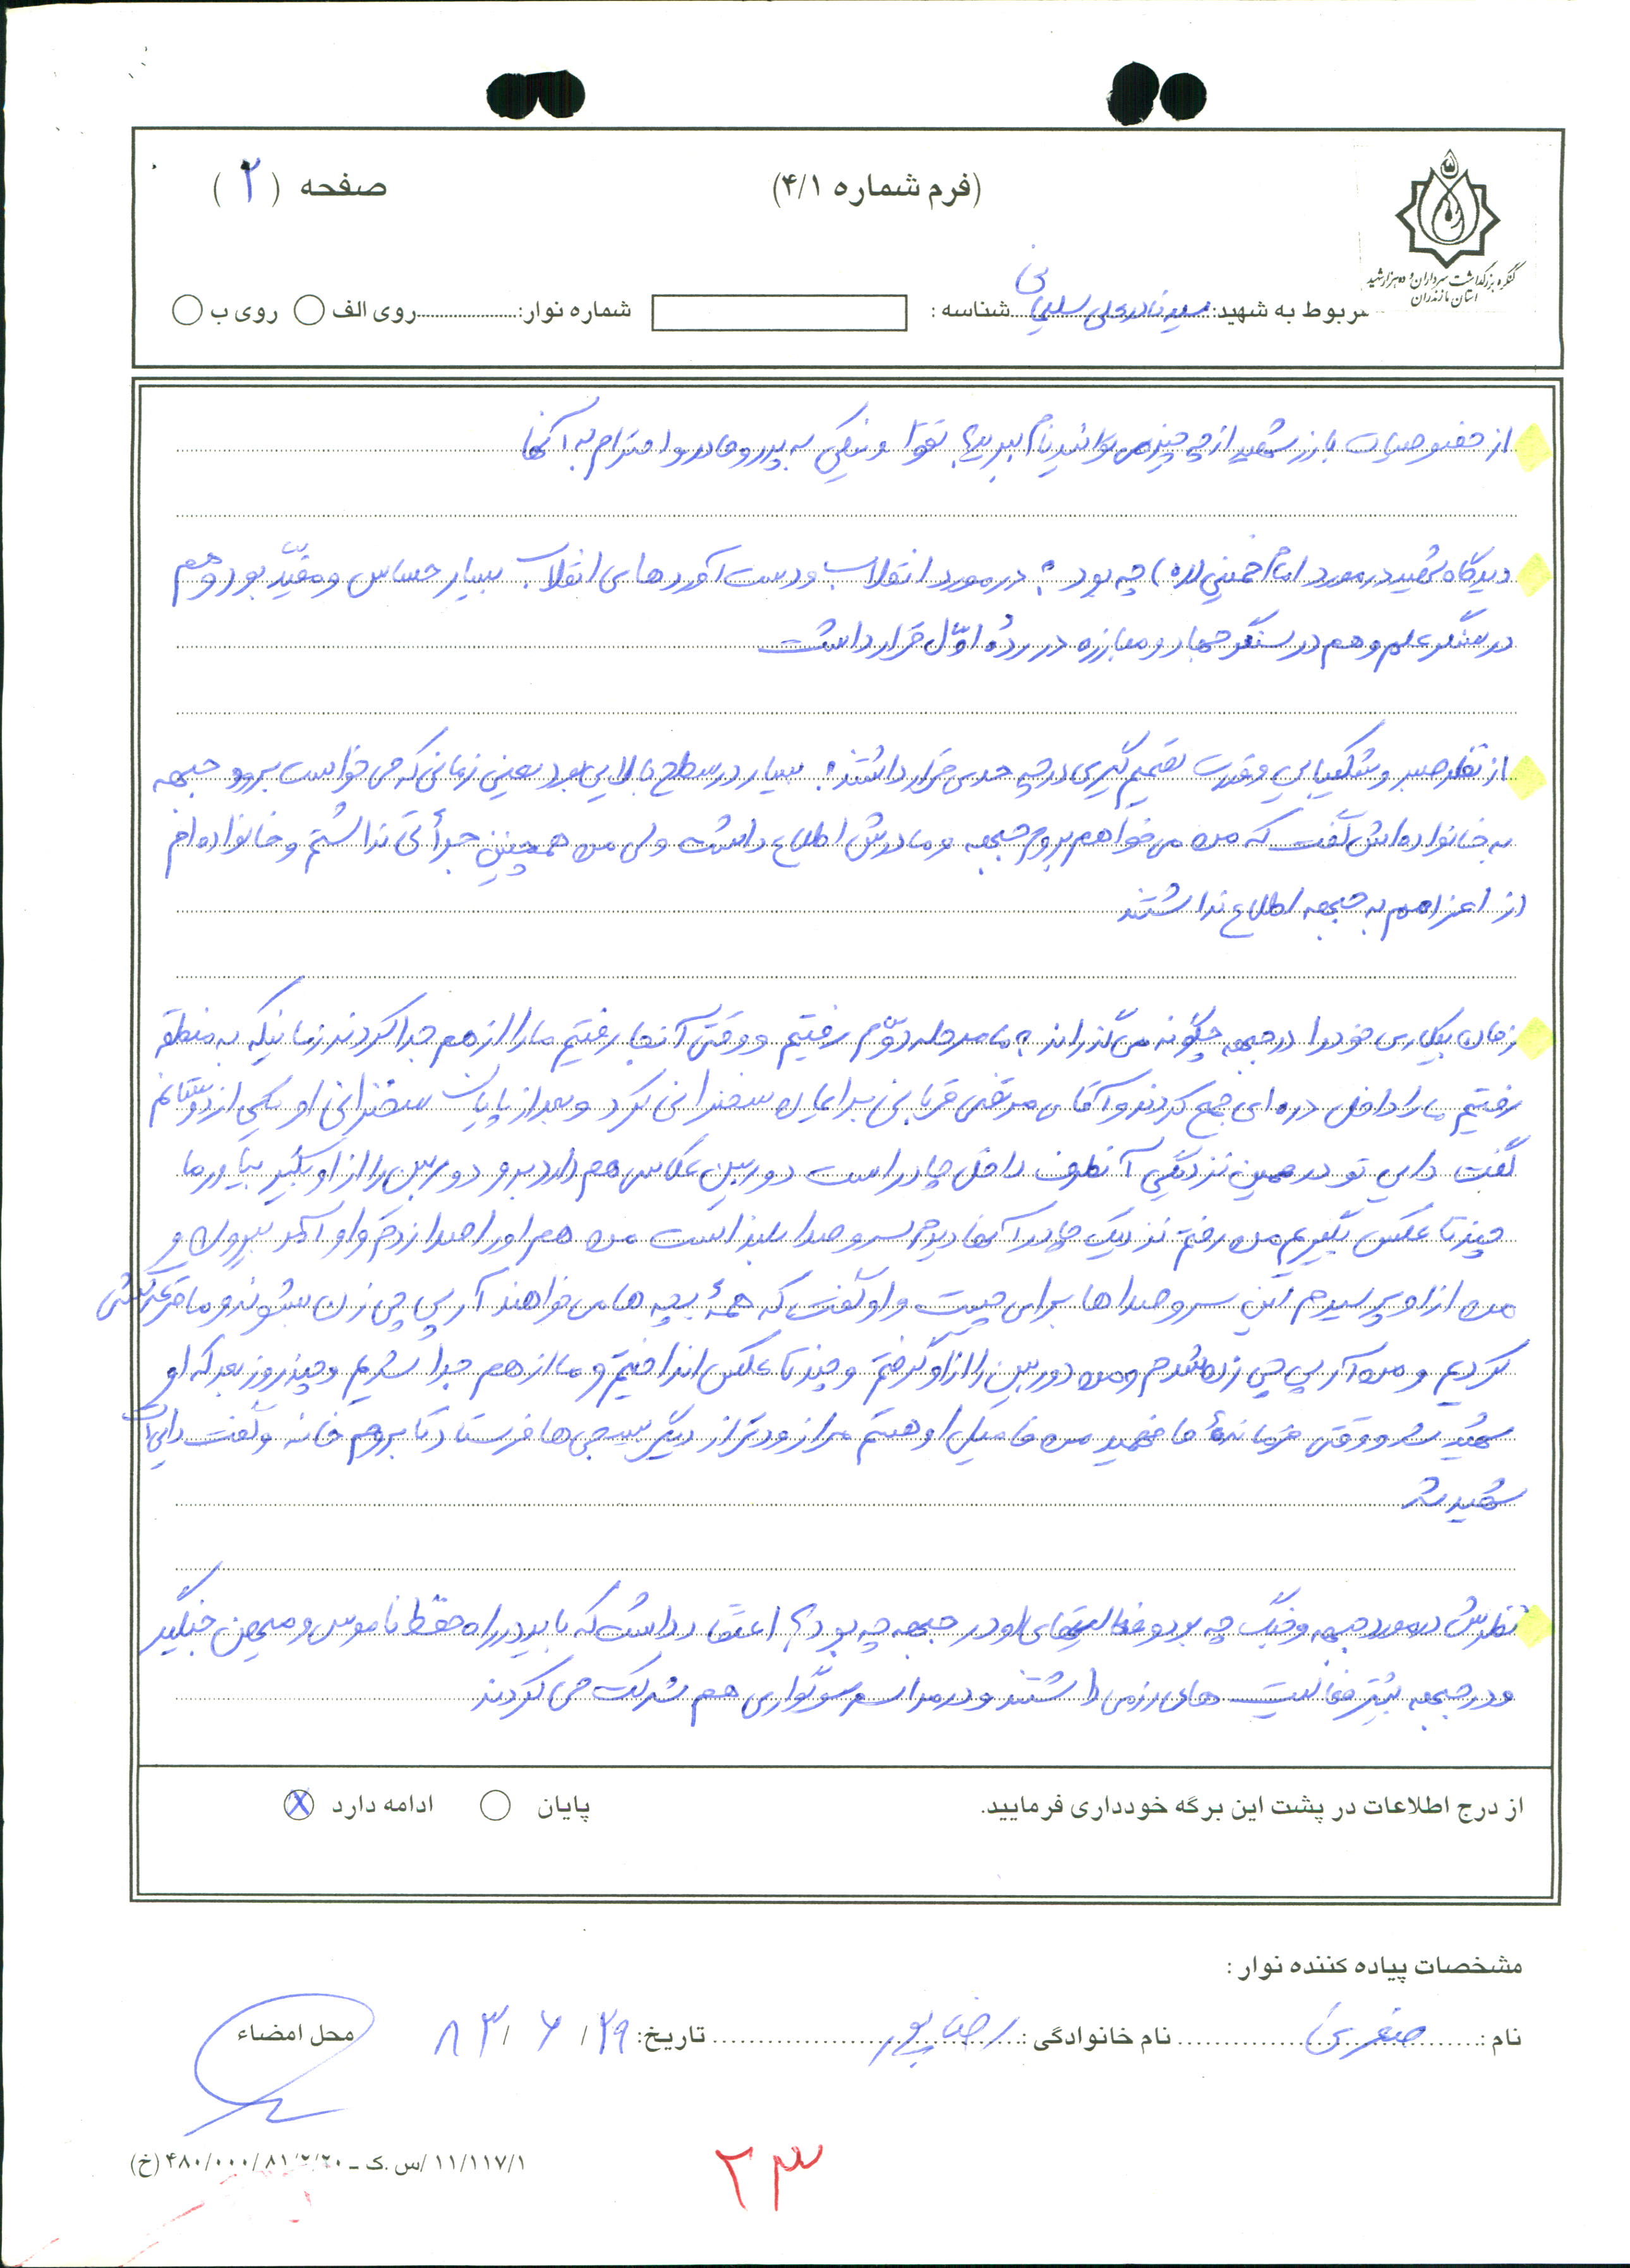 (فرم شماره ۴/۱)
صفحه (۲)
کنگره بزرگداشت سرداران و ده هزار شهید
استان مازندران
مربوط به شهید: سید نادر علی سلیمانی شناسه : شماره نوار: روی الف روی ب
از خصوصیات بارز شهید از چه چیز می توانید نام ببرید؟ تقوا و نیکی به پدر و مادر و احترام به آنها
دیدگاه شهید در مورد امام خمینی (ره) چه بود ؟ در مورد انقلاب و دست آوردهای انقلاب بسیار حساس و مقیّد بود و هم
در سنگر علم و هم در سنگر جهاد و مبارزه در ردهٔ اوّل قرار داشت
از نظر صبر و شکیبایی و قدرت تصمیم گیری در چه حدی قرار داشتند؟ بسیار در سطح بالایی بود یعنی زمانی که می خواست برود جبهه
به خانواده اش گفت که من می خواهم بروم جبهه و مادرش اطلاع داشت ولی من همچنین جرأتی نداشتم و خانواده ام
از اعزامم به جبهه اطلاع نداشتند
زمان بیکاری خود را در جبهه چگونه می گذراند ؟ ما مرحله دوّم رفتیم و وقتی آنجا رفتیم ما را از هم جدا کردند زمانیکه به منطقه
رفتیم ما را داخل دره ای جمع کردند و آقای مرتضی قربانی برایمان سخنرانی کرد و بعد از پایان سخنرانی او یکی از دوستانم
گفت دایی تو در همین نزدیکی آنطرف داخل چادر است دوربین عکاسی هم دارد برو دوربین را از او بگیر بیاور ما
چند تا عکس بگیریم من رفتم نزدیک چادر آنها دیدم سر و صدا بلند است من هم او را صدا زدم و او آمد بیرون و
من از او پرسیدم این سر و صداها برای چیست و او گفت که همهٔ بچه ها می خواهند آر پی چی زن بشوند و ما قرعه کشی
کردیم و من آر پی چی زن شدم و من دوربین را از او گرفتم و چند تا عکس انداختیم و ما از هم جدا شدیم و چند روز بعد که او
شهید شد و وقتی فرماندهٔ ما فهمید من فامیل او هستم مرا زودتر از دیگر بسیجی ها فرستاد تا بروم خانه و گفت دایی ات
شهید شد
نظرش در مورد جبهه و جنگ چه بود و فعالیتهای او در جبهه چه بود؟ اعتقاد داشت که باید در راه حفظ ناموس و میهن جنگید
و در جبهه بیشتر فعالیت های رزمی داشتند و در مراسم سوگواری هم شرکت می کردند
از درج اطلاعات در پشت این برگه خودداری فرمایید. پایان ادامه دارد
مشخصات پیاده کننده نوار :
نام : صغری نام خانوادگی : رضاپور تاریخ: ۸۳/ ۶ / ۲۹ محل امضاء
۱۱/۱۱۷/۱ /س.ک ـ ۴۸۰/۰۰۰/ ۸۱/۲/۲۰ (خ)
۲۳